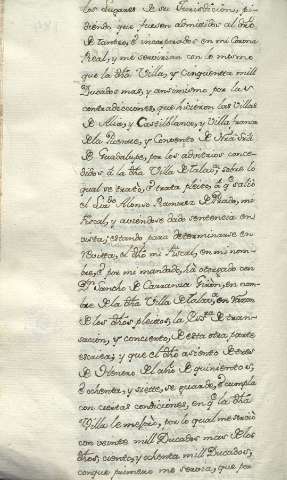 los lugares de su Jurisdicion, pi-
diendo que fuesen admitidos al dho
de tanteo, è incorporados en mi Corona
Real, y me servirian con lo mismo
que la dha Villa, y Cinquenta mill
Ducados mas, y ansimismo por las
contradicciones, que hicieron las Villas
de Alia, y Castilblanco, y Villa franca
de la Puente, y Convento de Nrâ Srâ
de Guadalupe, por los advitrios conce-
didos à la dha Villa de Talavª; sobre lo
qual se trato, è trata pleito, à q salió
el Lizdo Alonso Ramirez de Prado, mi
Fiscal, y aviendose dado sentencia en
vista; estando para determinarse en
Revista, el dho mi Fiscal, en mi nom-
bre, è por mi mandado, hà otorgado con
Dn Sancho de Carranza Giron, en nom-
bre de la dha Villa de Talavª, en razon
de los dhos pleitos, la Essrª de tran-
sacion, y conciento, de esta otra parte
escrita; y que el dho asiento de tres
de Henero del año de quinientos,
è ochenta, y siete, se guarde, è cumpla
con ciertas condiciones, en q la dha
Villa le me pie, por lo qual me sirvió
con veinte mill Ducados mas de los
dhos, ciento, y ochenta mill Ducados,
conque primero me servia, que por